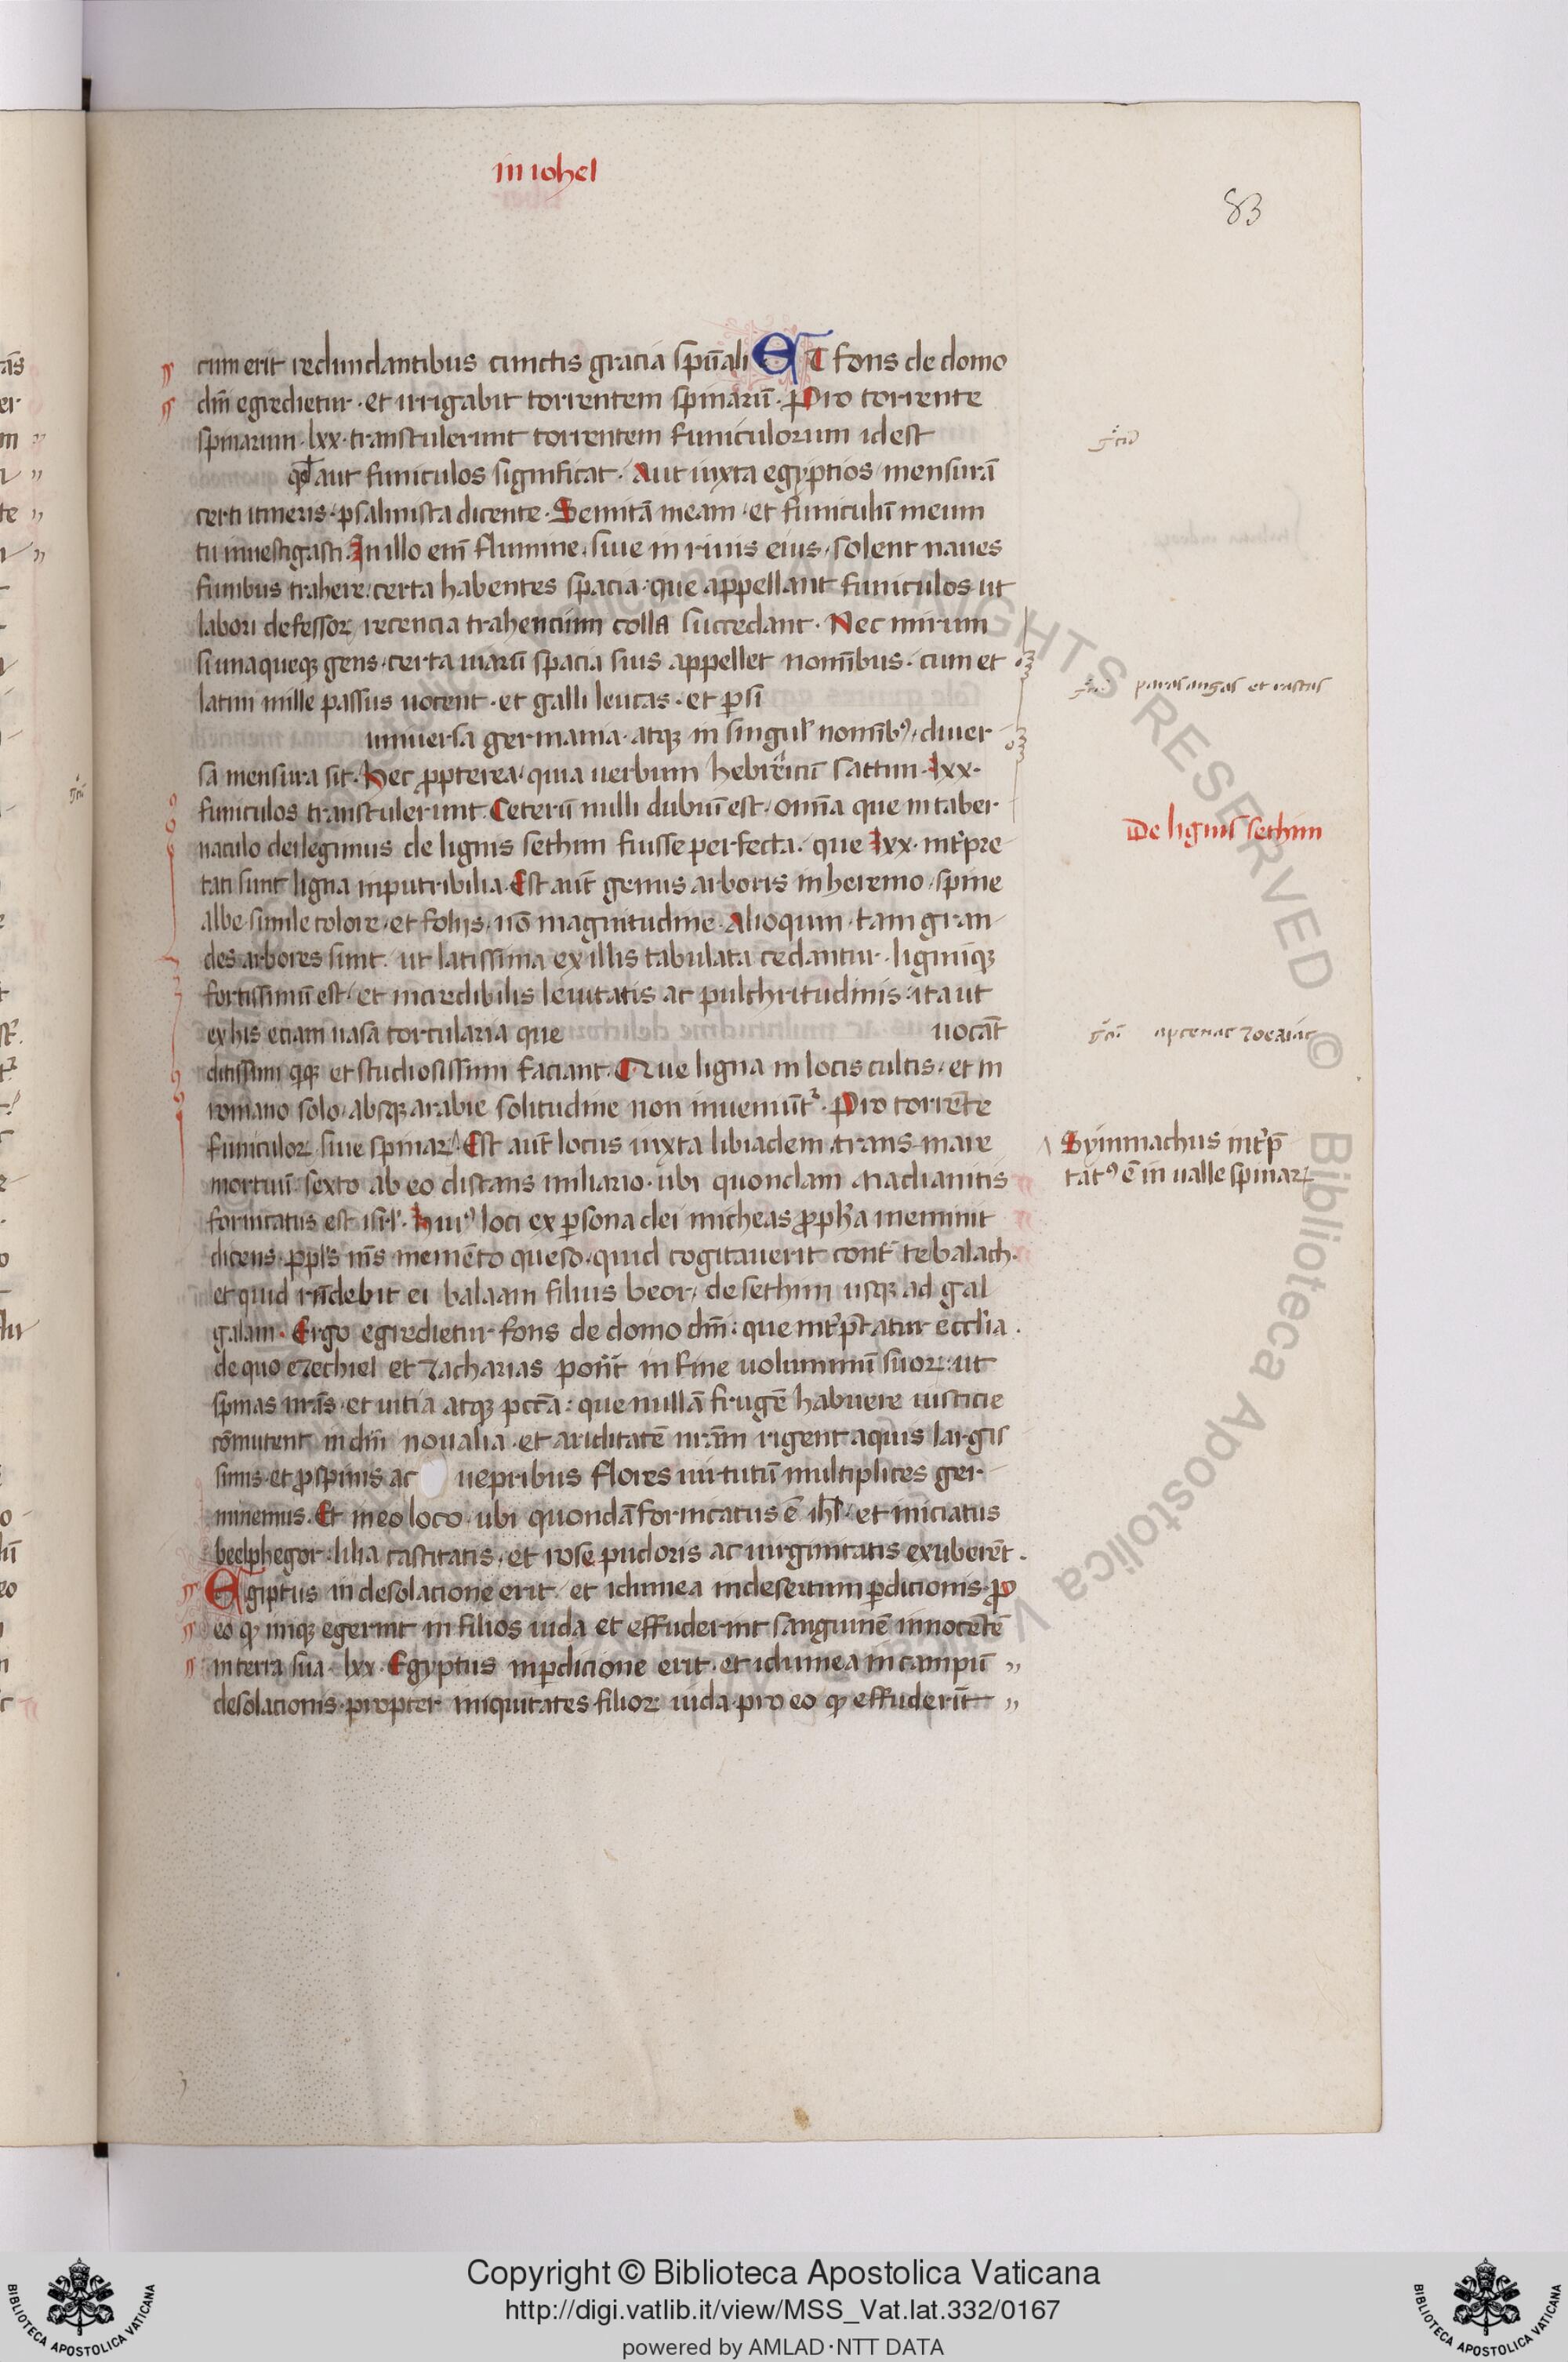 in iohel
83
cum erit redundantibus cunctis gracia sp̄uali ET fons de domo
dn̄i egredietur · et irrigabit torrentem spinarū · Pro torrente
spinarum · lxx · transtulerunt torrentem funiculorum idest
qd̄ aut funiculos significat · Aut iuxta egyptios mensurā
certi itineris · psalmista dicente · Semitā meam · et funiculū meum
tu inuestigasti · In illo em̄ flumine · siue in riuis eius · solent naues
funibus trahere : certa habentes spacia : que appellant funiculos ut
labori defessoꝝ recencia trahencium colla succedant · Nec mirum
si unaqueqꝫ gens · certa uiarū spacia suis appellet nomībus · cum et
latini mille passus uocent · et galli leucas · et ꝑsi
parasangas et rastas
uniuersa germania · atqꝫ in singul' nomīb⁹ · diuer
sa mensura sit · Hec ꝓpterea · quia uerbum hebreicū sattim · lxx ·
funiculos transtulerunt · Ceterū nulli dubiū est · omīa que in taber
naculo dei legimus de lignis sethim fuisse perfecta · que lxx · int̄pre
De lignis sethim
tati sunt ligna inputribilia · Est aut̄ genus arboris in heremo · spine
albe · simile colore · et folijs · nō magnitudine · Alioquin · tam gran
des arbores sunt · ut latissima ex illis tabulata cedantur · lignūqꝫ
fortissimū est · et incredibilis leuitatis ac pulchritudinis · ita ut
ex his eciam uasa torcularia que uocāt
ditissimi qͥqꝫ et studiosissimi faciant · Que ligna in locis cultis · et in
romano solo · absqꝫ arabie solitudine non inueniūt᷑ · Pro torrēte
funiculoꝝ siue spinaꝝ · Est aut̄ locus iuxta libiadem · trans mare
Symmachus int̄p̄
tat⁹ ē in ualle spinaꝝ
mortuū · sexto ab eo distans miliario · ubi quondam madianitis
fornicatus est isr̄l · Hui⁹ loci ex ꝑsona dei micheas ꝓph̄a meminit
dicens · ppl̄s m̄s memēto queso · quid cogitauerit cont̄ te balach ·
et quid rn̄debit ei balaam filius beor · de sethim usqꝫ ad gal
galam · Ergo egredietur fons de domo dn̄i : que int̄p̄tatur eccl̄ia ·
de quo ezechiel et zacharias ponūt in fine uoluminū suoꝝ : ut
spinas nr̄as · et uitia atqꝫ pccā : que nullā frugē habuere iusticie
cōmutent in dn̄i noualia · et ariditatē nr̄am rigent aquis largis
simis · et ꝓ spinis ac uepribus flores uirtutū multiplices ger
minemus · Et in eo loco · ubi quondā fornicatus ē ihl̄ · et iniciatus
beelphegor : lilia castitatis · et rose pudoris ac uirginitatis exuberēt ·
Egiptus in desolacione erit · et idumea in desertum ꝑdicionis · ꝓ
eo ꝙ iniqꝫ egerint in filios iuda et effuderint sanguinē innocētē
in terra sua · lxx · Egyptus in ꝑdicione erit · et idumea in campū
desolacionis · propter iniquitates filioꝝ iuda · pro eo ꝙ effuderīt
Copyright © Biblioteca Apostolica Vaticana
http://digi.vatlib.it/view/MSS_Vat.lat.332/0167
powered by AMLAD·NTT DATA
BIBLIOTECA APOSTOLICA VATICANA
BIBLIOTECA APOSTOLICA VATICANA